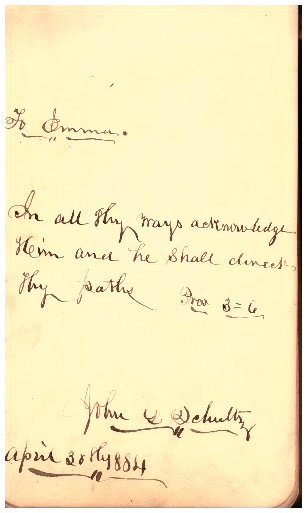 To Emma.
In all thy ways acknowledge
Him and he shall direct
thy paths Prov 3=6
John S Schultz
April 30th 1884